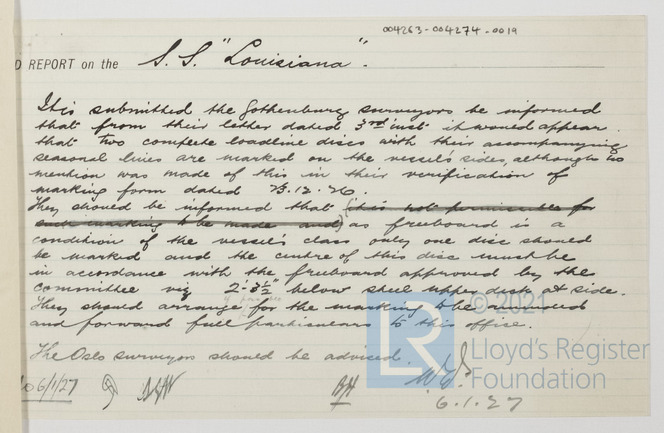 004263-004274-0019
D REPORT on the S.S. "Louisiana".
It is submitted the Gothenburg surveyors be informed
that from their letter dated 3rd inst it would appear
that two complete loadline discs with their accompanying
seasonal lines are marked on the vessel's sides, although no
mention was made of this in their verification of
marking form dated 23.12.26.
They should be informed that (it is not permissible for
such marking to be made and) as freeboard is a
condition of the vessel's class only one disc should
be marked and the centre of this disc must be
in accordance with the freeboard approved by the
committee viz 2'-3½" below steel upper deck at side.
They should arrange for the marking to be
and forward full particulars to this office.
The Oslo surveyors should be advised.
6/1/27
6.1.27
© 2021
LR
Lloyd's Register
Foundation